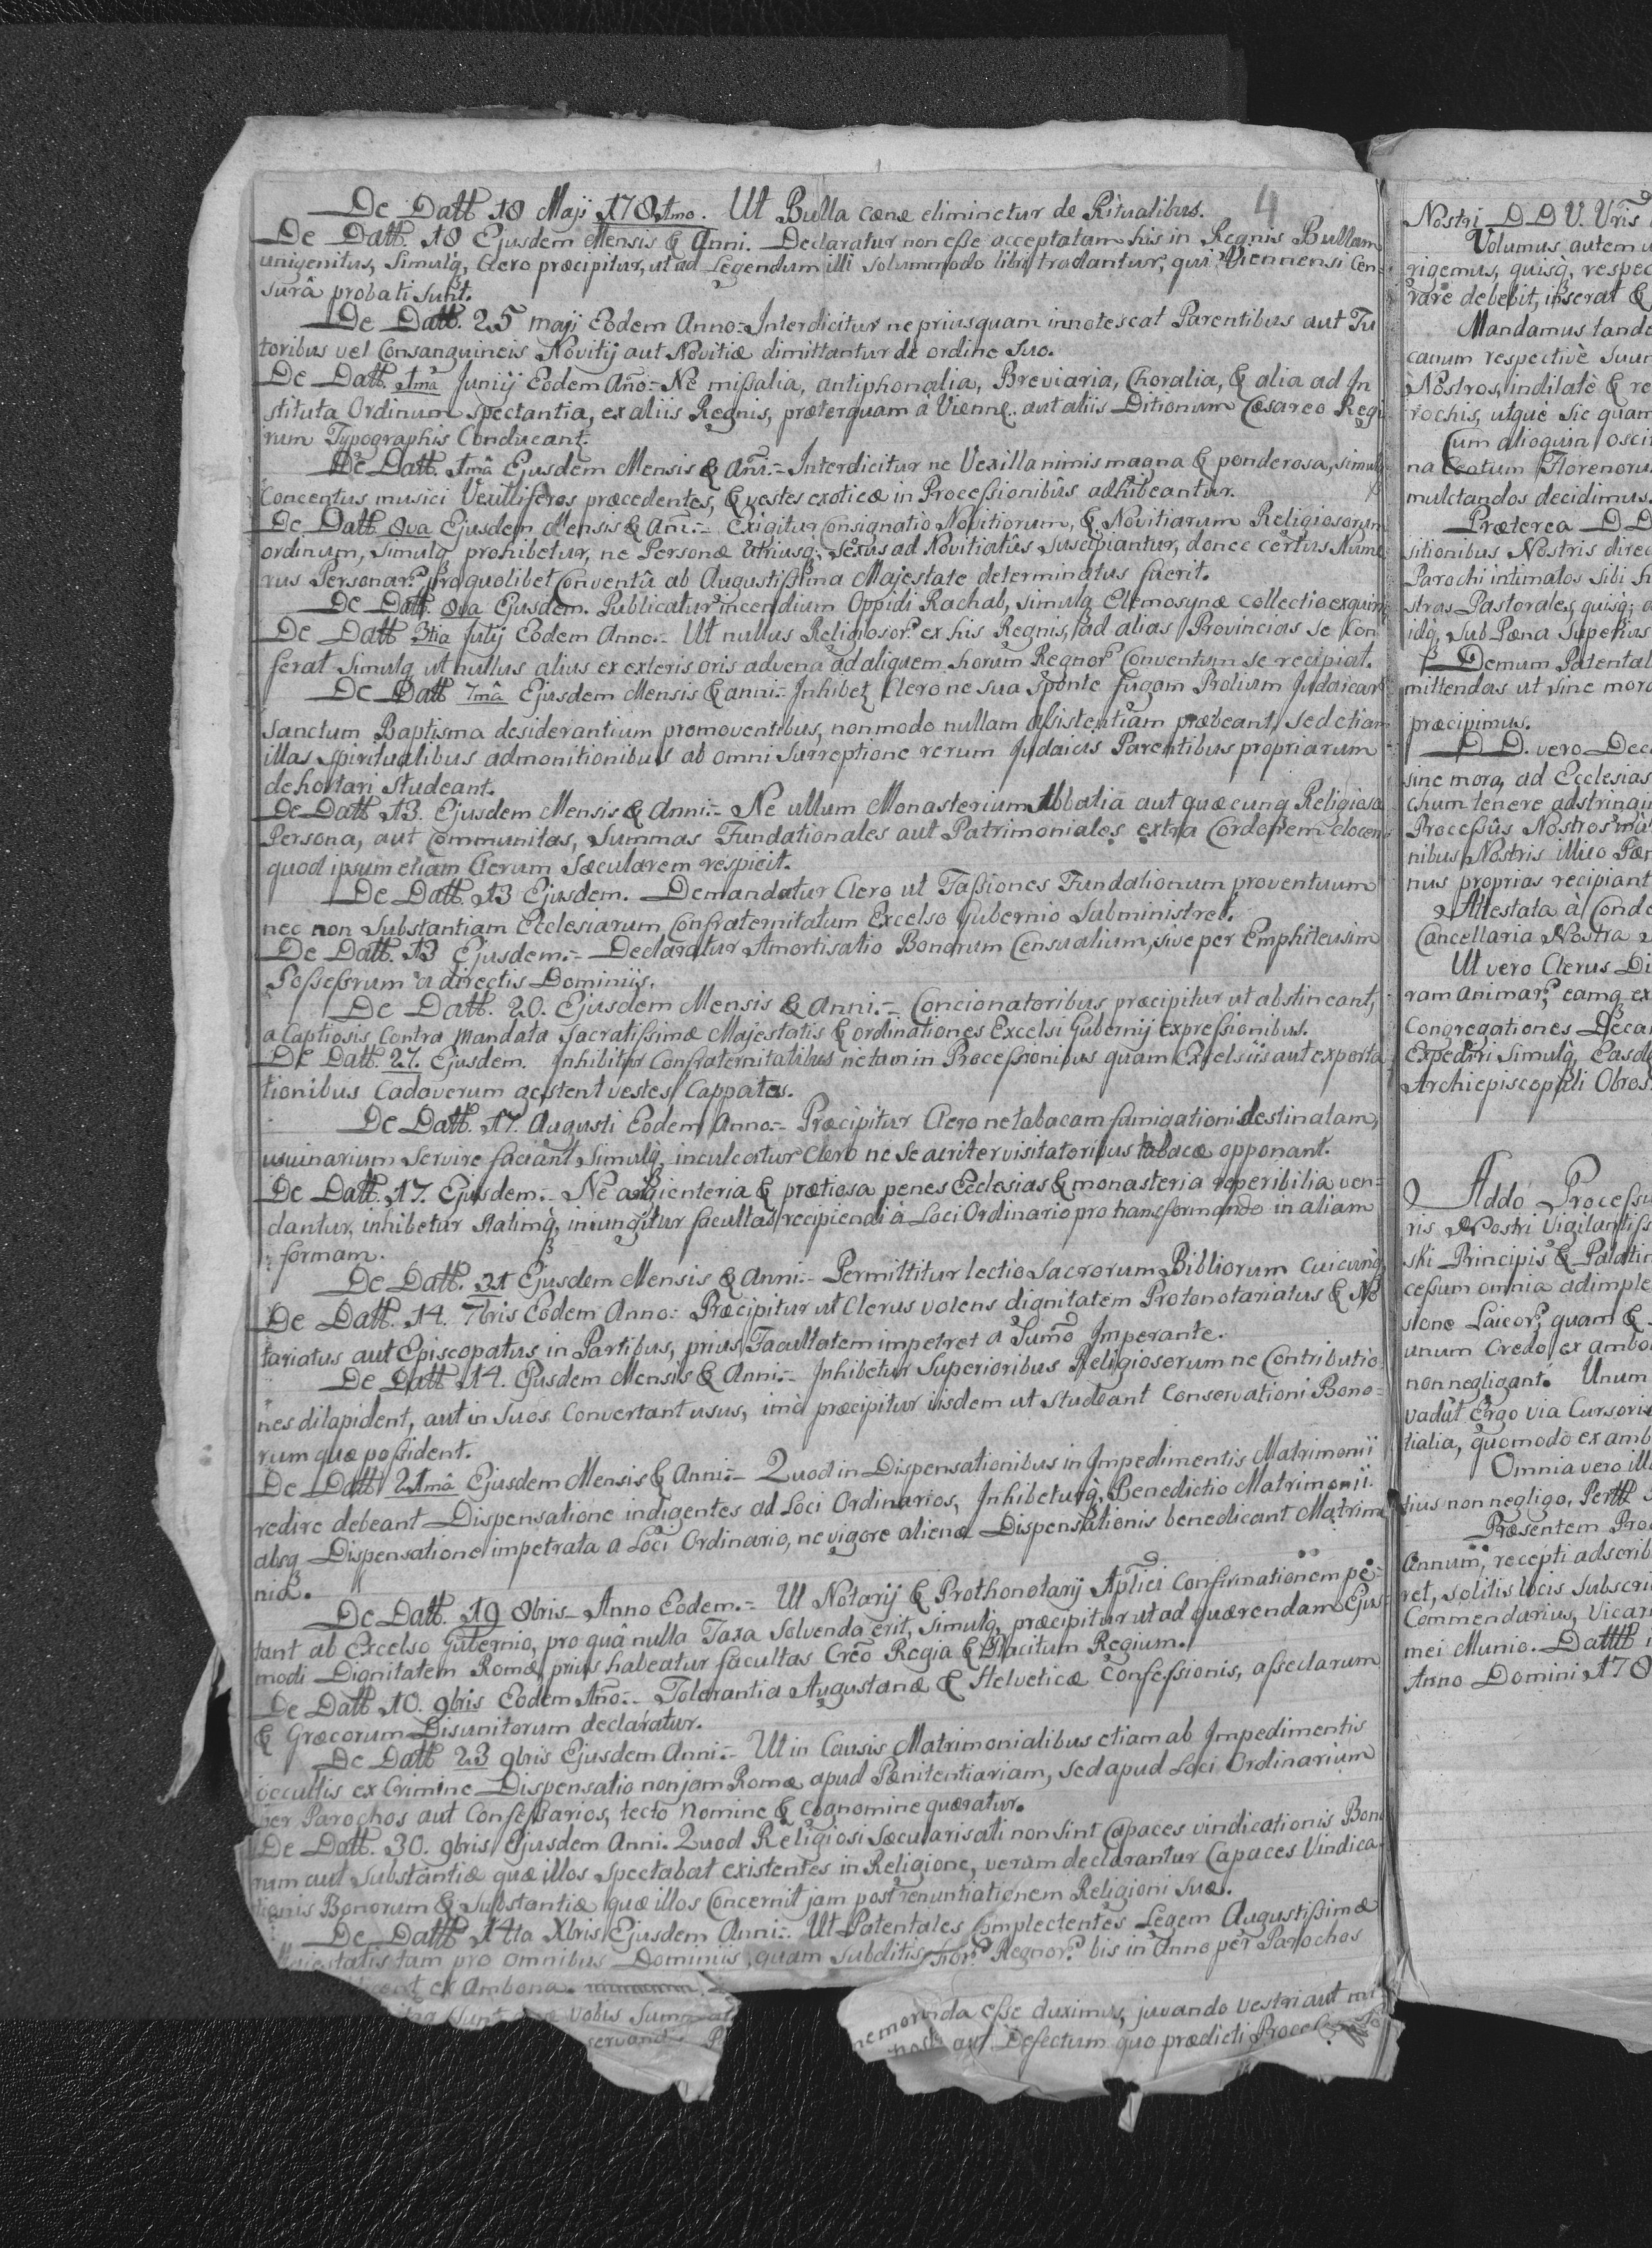 4
De Datt 18 Maji 1781mo. Ut Bulla cænæ eliminetur de Ritualibus.
De Datt. 18 Ejusdem Mensis & Anni. Declaratur non eſse acceptatam his in Regnis Bullam
unigenitus, Simulq, Clero præcipitur, ut ad Legendum illi solummodo libri tradantur, qui Viennensi Cen-
surâ probati sunt.
De Datt. 25 maji Eodem Anno.- Interdicitur ne priusquam innotescat Parentibus aut Tu
toribus vel Consanguineis Novitij aut Novitiæ dimittantur de ordine suo.
De Datt. 1mâ Junij Eodem Año.- Ne miſsalia, antiphonalia, Breviaria, Choralia, & alia ad In
stituta Ordinum spectantia, ex aliis Regnis, præterquam à Vienne. aut aliis Ditionum Cæsareo Regi
rum Typographis Conducant.
De Datt. 1mâ Ejusdem Mensis & Añi.- Interdicitur ne Vexilla nimis magna & ponderosa, simul
Concentus musici Vexilliferos præcedentes, & vestes exoticæ in Proceſsionibûs adhibeantur.
De Datt 8va Ejusdem Mensis & Ani.- Exigitur Consignatio Novitiorum, & Novitiarum Religiosorum
ordinum, Simulq prohibetur, ne Personæ utriusq; Sexus ad Novitiatûs suscipiantur, donec certus Nume
rus Personar. pro quolibet Conventû ab Augustiſsima Majestate determinatus fuerit.
De Datt. 8va Ejusdem. Publicatur incendium Oppidi Rachab, simulq Elemosynæ collectio exquiri
De Datt 3tia Julij Eodem Anno.- Ut nullus Religiosor. ex his Regnis, ad alias Provincias se Con
ferat Simulq ut nullus alius ex exteris oris advena ad aliquem horum Regnor. Conventum se recipiat.
De Datt 7mâ Ejusdem Mensis & anni.- Inhibet Clero ne sua Sponte fugam Prolium Judaicar
Sanctum Baptisma desiderantium promoventibus, non modo nullam aſsistentiam præbeant, sed etiam
illas spiritualibus admonitionibus ab omni Surreptione rerum Judaicis Parentibus propriarum
dehortari studeant.
De Datt 13. Ejusdem Mensis & Anni.- Ne ullum Monasterium Abbatia aut quæcunq Religiosa
Persona, aut Communitas, Summas Fundationales aut Patrimoniales extra Cordonem elocent
quod ipsum etiam Clerum Sæcularem respicit.
De Datt. 13 Ejusdem. Demandatur Clero ut Faſsiones Fundationum proventuum
nec non Substantiam Ecclesiarum, Confraternitatum Excelso Gubernio subministret.
De Datt. 13 Ejusdem.- Declaratur Amortisatio Bonorum Censualium, sive per Emphiteusim
Poſseſsrum a directis Dominiis.
De Datt. 20. Ejusdem Mensis & Anni.- Concionatoribus præcipitur ut abstineant,
a Captiosis Contra Mandata Sacratiſsimæ Majestatis & ordinationes Excelsi Gubernij expreſsionibus.
De Datt. 27. Ejusdem. Inhibitur Confraternitatibus ne tam in Proceſsionibus quam Exelsiis aut exporta
tionibus Cadaverum gestent vestes Cappatas.
De Datt. 17. Augusti Eodem Anno.- Præcipitur Clero ne tabacam fumigationi destinatam,
usuinarium servire faciant Simulq, inculcatur Clero ne se acriter visitatoribus tabacæ opponant.
De Datt. 17. Ejusdem.- Ne argienteria & prætiosa penes Ecclesias & monasteria reperibilia ven-
dantur, inhibetur statimq, iniungitur facultas recipiendi à Loci Ordinario pro transformando in aliam
formam.
De Datt. 21 Ejusdem Mensis & Anni.- Permittitur lectio Sacrorum Bibliorum Cuicunq
De Datt. 14. 7bris Eodem Anno. Præcipitur ut Clerus volens dignitatem Protonotariatus & No
tariatus aut Episcopatus in Partibus, prius Facultatem impetret a Sumo Imperante.
De Datt 14. Ejusdem Mensis & Anni.- Inhibetur Superioribus Religiosorum ne Contributio
nes dilapident, aut in suos Convertant usus, imò præcipitur iisdem ut studeant Conservationi Bono-
rum quæ poſsident.
De Datt 21mâ Ejusdem Mensis & Anni.- Quod in Dispensationibus in Impedimentis Matrimonii
redire debeant Dispensatione indigentes ad Loci Ordinarios, Inhibeturq, Benedictio Matrimonii
absq Dispensatione impetrata a Loci Ordinario, ne vigore alienæ Dispensationis benedicant Matrimo
nia.
De Datt. 19 8bris Anno Eodem.- Ut Notarij & Prothonotarij Aplici Confirmationem pe-
tant ab Excelso Gubernio, pro quâ nulla Taxa Solvenda erit, Simulq, præcipitur ut ad quærendam Ejus-
modi Dignitatem Romæ, prius habeatur facultas Creo Regia & Placitum Regium.
De Datt 10. 9bris Eodem Año.- Tolerantia Augustanæ & Helveticæ Confeſsionis, aſseclarum
& Græcorum Disunitorum declaratur.
De Datt 23 9bris Ejusdem Anni.- Ut in Causis Matrimonialibus etiam ab Impedimentis
occultis ex Crimine Dispensatio non jam Romæ apud Pænitentiariam, sed apud Loci Ordinarium
per Parochos aut Confeſsarios, tecto Nomine & Cognomine quæratur.
De Datt. 30. 9bris Ejusdem Anni. Quod Religiosi Sæcularisati non sint Capaces vindicationis Bono
rum aut Substantiæ quæ illos spectabat existentes in Religione, verum declarantur Capaces Vindica
tionis Bonorum & Substantiæ quæ illos Concernit jam post renuntiationem Religioni suæ.
De Datt 14ta Xbris Ejusdem Anni.- Ut Patentales Complectentes Legem Augustiſsimæ
tam pro omnibus Dominiis, quam Subditis hor. Regnor. bis in Anno per Parochos
ex Ambona.
sunt vobis
memoranda eſse duximus, juvando vestri aut
aut Defectum quo prædicti
Nostri D D V. Vris
Volumus autem
rigemus, quisq, respec
rare debebit, inserat &
Mandamus tande
canum respectivè suum
Nostros, indilatè & re
rochis, utque sic quam
Cum alioquin osci
na Centum Florenoru
mulctandos decidimus.
Præterea D D
sitionibus Nostris direc
Parochi intimatos sibi h
stras Pastorales, quisq; a
idq, sub Pæna Superius
Demum Patental
mittendas ut sine mora
præcipimus.
D D. vero Dec
sine mora, ad Ecclesias
chum tenere adstringi
Proceſsûs Nostros
nibus Nostris illico Pæn
nus proprias recipiant
Attestata à Cond
Cancellaria Nostra
Ut vero Clerus Di
ram animar. eamq ex
Congregationes Deca
Expediri Simulq, Easd
Archiepiscopali Obros
Addo Proceſsu
ris Nostri Vigilantiſs
ski Principis & Palatin
ceſsum omnia adimple
sione Laicor, quam &
unum Credo, ex ambo
non negligant. Unum
vadût Ergo via Cursori
tialia, quomodo ex amb
Omnia vero ill
tius non negligo, Pertt
Præsentem Pro
Annum, recepti adscrib
ret, solitis locis subscri
Commendarius, Vicari
mei Munio. Datttt i
Anno Domini 178